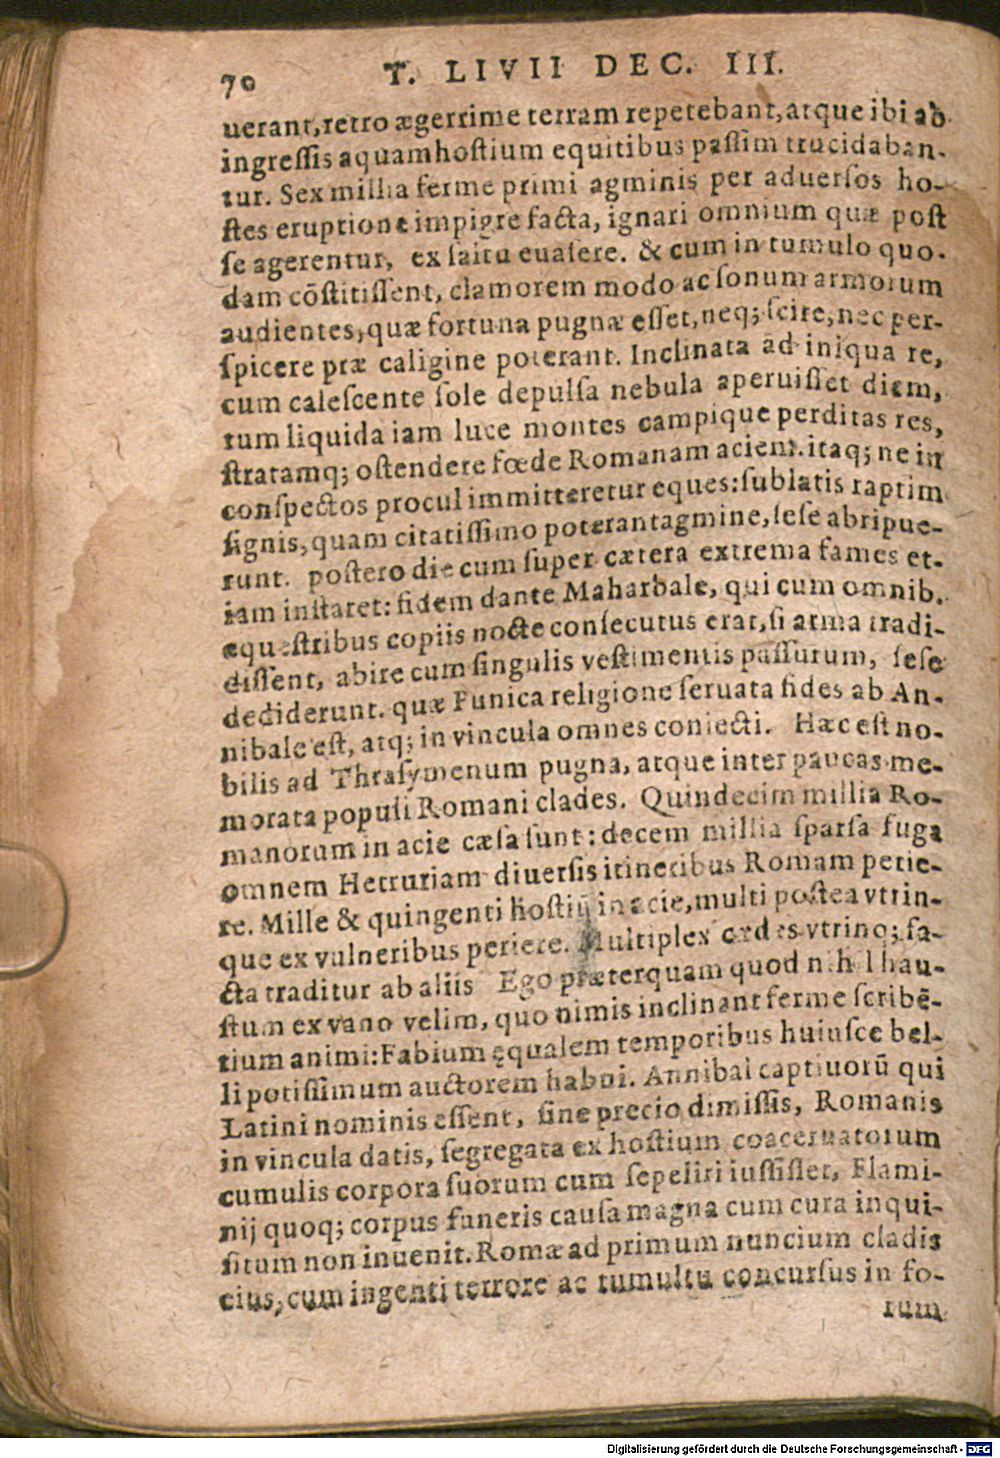 70 T. LIVII DEC. III.
uerant, retro ægerrime terram repetebant, atque ibi ab
ingressis aquam hostium equitibus passim trucidaban-
tur. Sex millia ferme primi agminis per aduersos ho-
stes eruptione impigre facta, ignari omnium quæ post
se agerentur, ex saltu euasere. & cum in tumulo quo-
dam cōstitissent, clamorem modo ac sonum armorum
audientes, quæ fortuna pugnæ esset, neq; scire, nec per-
spicere præ caligine poterant. Inclinata ad iniqua re,
cum calescente sole depulsa nebula aperuisset diem,
tum liquida iam luce montes campique perditas res,
stratamq; ostendere fœde Romanam aciem. itaq; ne in
conspectos procul immitteretur eques: sublatis raptim
signis, quam citatissimo poterant agmine, sese abripue-
runt. postero die cum super cætera extrema fames et-
iam instaret: fidem dante Maharbale, qui cum omnib.
equestribus copiis nocte consecutus erat, si arma tradi-
dissent, abire cum singulis vestimentis passurum, sese
dediderunt. quæ Punica religione seruata fides ab An-
nibale est, atq; in vincula omnes coniecti. Hæc est no-
bilis ad Thrasymenum pugna, atque inter paucas me-
morata populi Romani clades. Quindecim millia Ro-
manorum in acie cæsa sunt: decem millia sparsa fuga
omnem Hetruriam diuersis itineribus Romam petie-
re. Mille & quingenti hostiū in acie, multi postea vtrin-
que ex vulneribus periere. Multiplex cædes vtrinq; fa-
cta traditur ab aliis Ego præterquam quod nihil hau-
stum ex vano velim, quo nimis inclinant ferme scribē-
tium animi: Fabium ęqualem temporibus huiusce bel-
li potissimum auctorem habui. Annibal captiuorū qui
Latini nominis essent, sine precio dimissis, Romanis
in vincula datis, segregata ex hostium coaceruatorum
cumulis corpora suorum cum sepeliri iussisset, Flami-
nij quoq; corpus funeris causa magna cum cura inqui-
situm non inuenit. Romæ ad primum nuncium cladis
eius, cum ingenti terrore ac tumultu concursus in fo-
rum
Digitalisierung gefördert durch die Deutsche Forschungsgemeinschaft - DFG